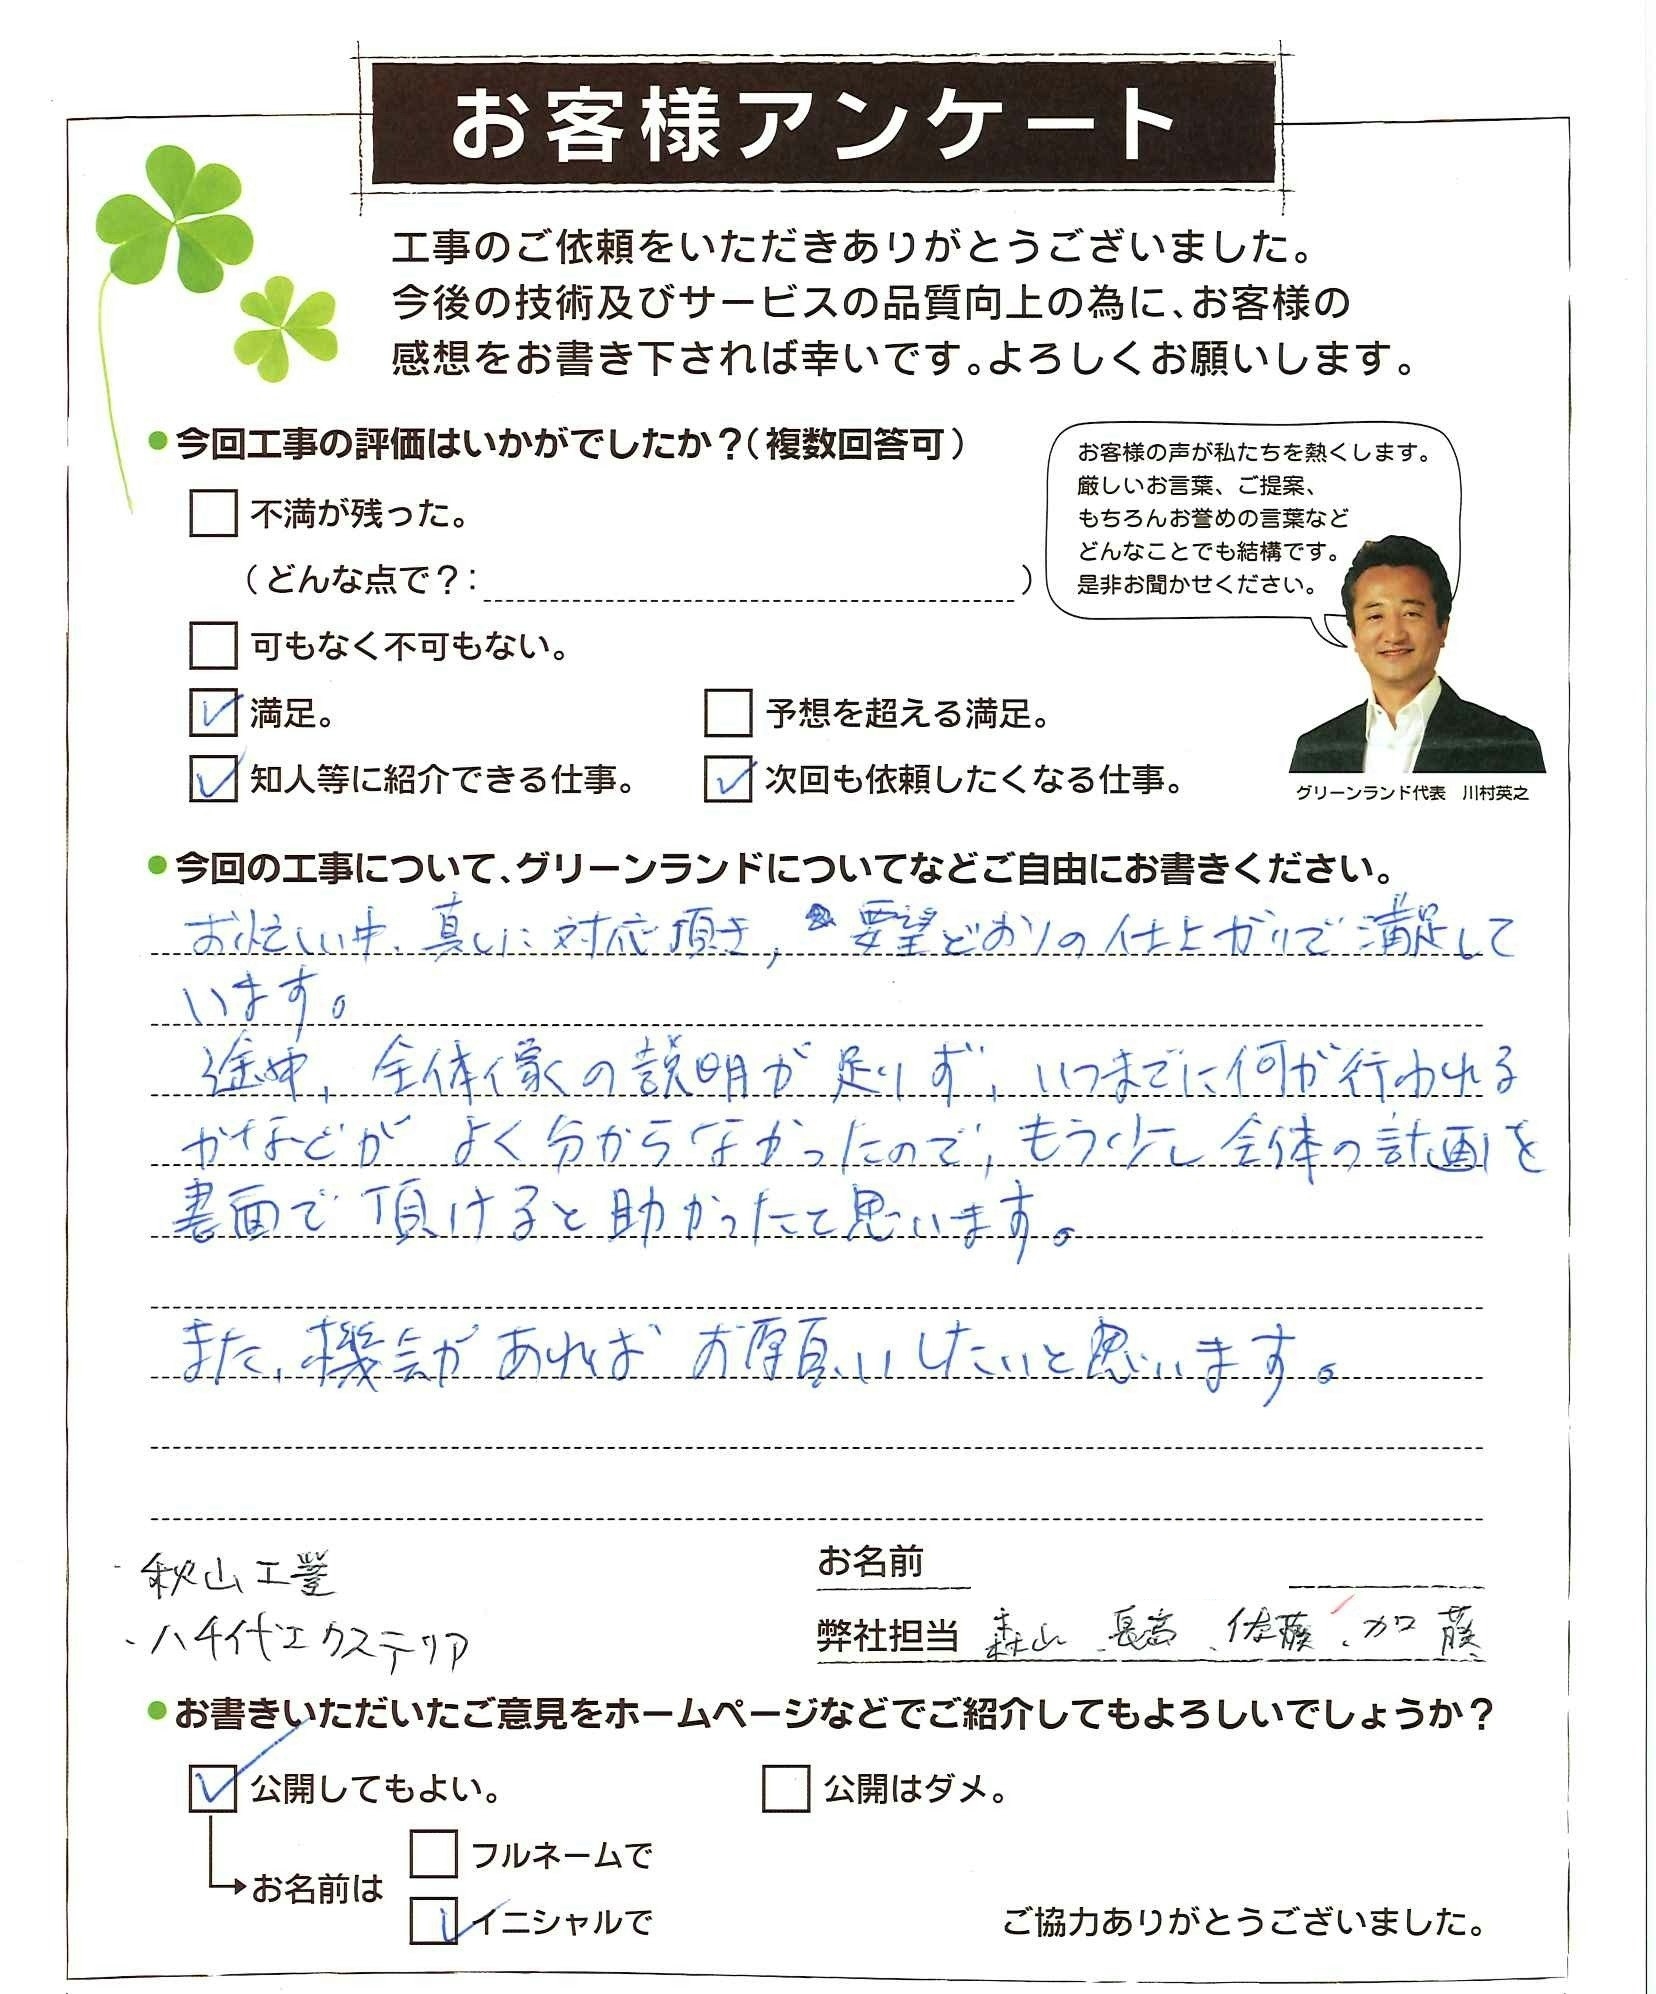 お客様アンケート
工事のご依頼をいただきありがとうございました。
今後の技術及びサービスの品質向上の為に、お客様の
感想をお書き下されば幸いです。よろしくお願いします。
●今回工事の評価はいかがでしたか？（複数回答可）
不満が残った。
（どんな点で？：　　　　）
可もなく不可もない。
満足。
予想を超える満足。
知人等に紹介できる仕事。
次回も依頼したくなる仕事。
お客様の声が私たちを熱くします。
厳しいお言葉、ご提案、
もちろんお誉めの言葉など
どんなことでも結構です。
是非お聞かせください。
グリーンランド代表　川村英之
●今回の工事について、グリーンランドについてなどご自由にお書きください。
お忙しい中、真しに対応頂き、要望どおりの仕上がりで満足して
います。
途中、全体像の説明が足りず、いつまでに何が行われる
かなどがよく分からなかったので、もう少し全体の計画を
書面で頂けると助かったと思います。
また、機会があればお願いしたいと思います。
・秋山工業
・ハチ代エクステリア
お名前
弊社担当 森山、長高、佐藤、加藤
●お書きいただいたご意見をホームページなどでご紹介してもよろしいでしょうか？
公開してもよい。
公開はダメ。
お名前は
フルネームで
イニシャルで
ご協力ありがとうございました。